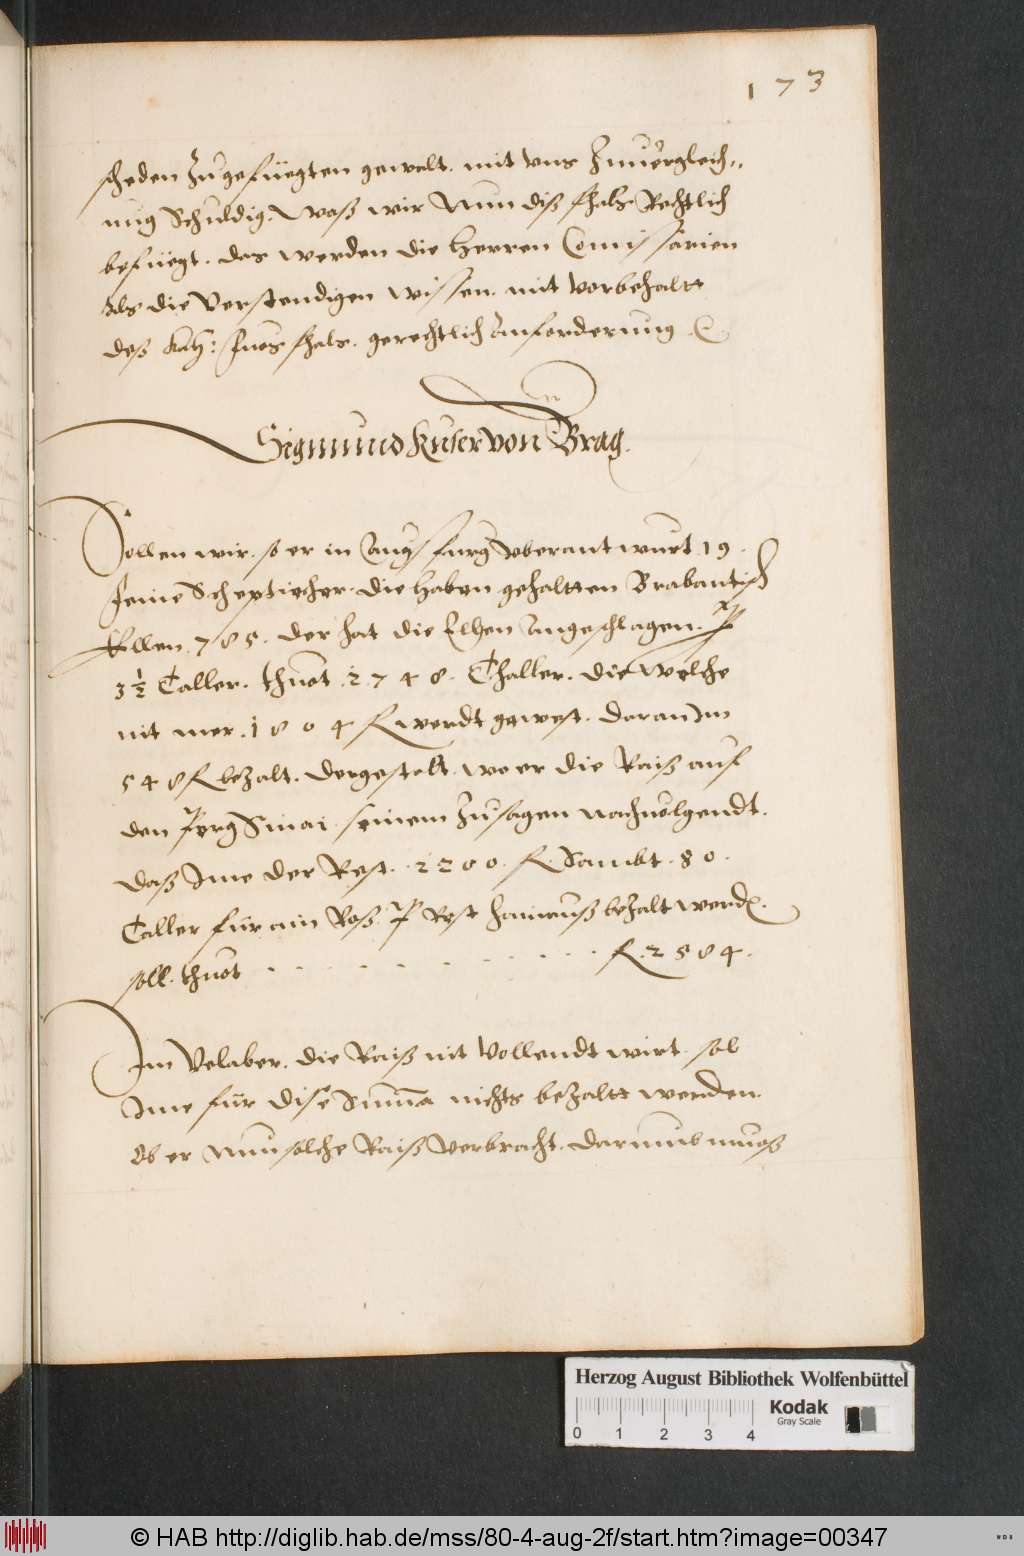 173
scheden Zugefüegten gewalt. mit vns Zuuergleich=
nug Schuldig. Waß wir Nun diß fhals Rechtlich
befüegt. das werden die Herren Comissarien
als die Verstendigen wissen. mit vorbehaltt
deß fhals. gerechtlich Anforderung
Sigmund Kuser von Brag.
Sollen wir. so er in Augsspurg vberantwurt 19.
feine Scheptiecher. die haben gehaltten Brabantisch
Ellen. 785. der hat die Elhen Angeschlagen. P
3½ Taller. thuot. 2748. Thaller. die Welche
nit mer. 1804 fl werdt gewest. daran Im
548 fl bezalt. dergestalt. wo er die Raiß auf
den Perg Sinai seinem Zusagen nachuolgendt.
daß Ime der Rest. 2200. fl. Sambt. 80.
Taller für ain Roß. P Rest hinauß bezalt werd.
soll. thuot . . . . . . . . . . fl. 2584.
Im Velaber. die Raiß nit Vollendt wirt. sol
Ime für dise Summa nichts bezaltt werden.
Ob er Nun solche Raiß Verbracht. darumb muoß
Herzog August Bibliothek Wolfenbüttel
Kodak
Gray Scale
0 1 2 3 4
© HAB http://diglib.hab.de/mss/80-4-aug-2f/start.htm?image=00347